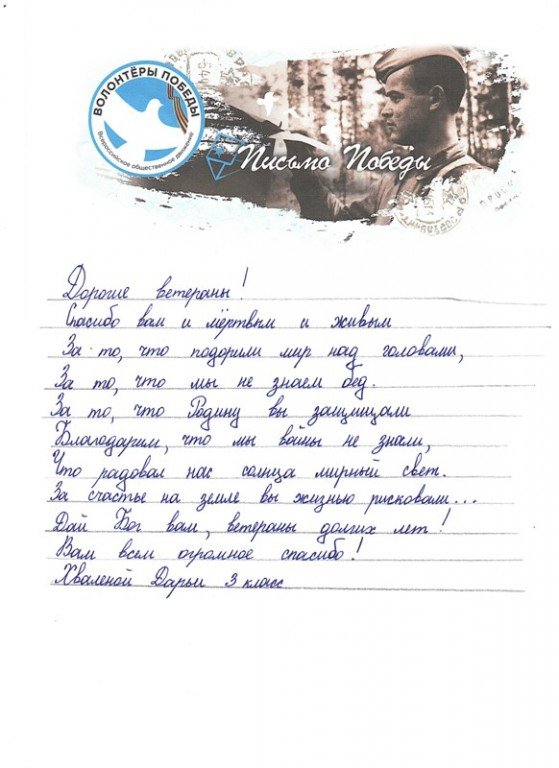 ВОЛОНТЁРЫ ПОБЕДЫ
Всероссийское общественное движение
Письмо Победы
Дорогие ветераны!
Спасибо вам и мёртвым и живым
За то, что подорили мир над головами,
За то, что мы не знаем бед.
За то, что Родину вы защищали
Благодарим, что мы войны не знали,
Что радовал нас солнца мирный свет.
За счастье на земле вы жизнью рисковали...
Дай Бог вам, ветераны долгих лет!
Вам всем огромное спасибо!
Хваленой Дарьи 3 класс